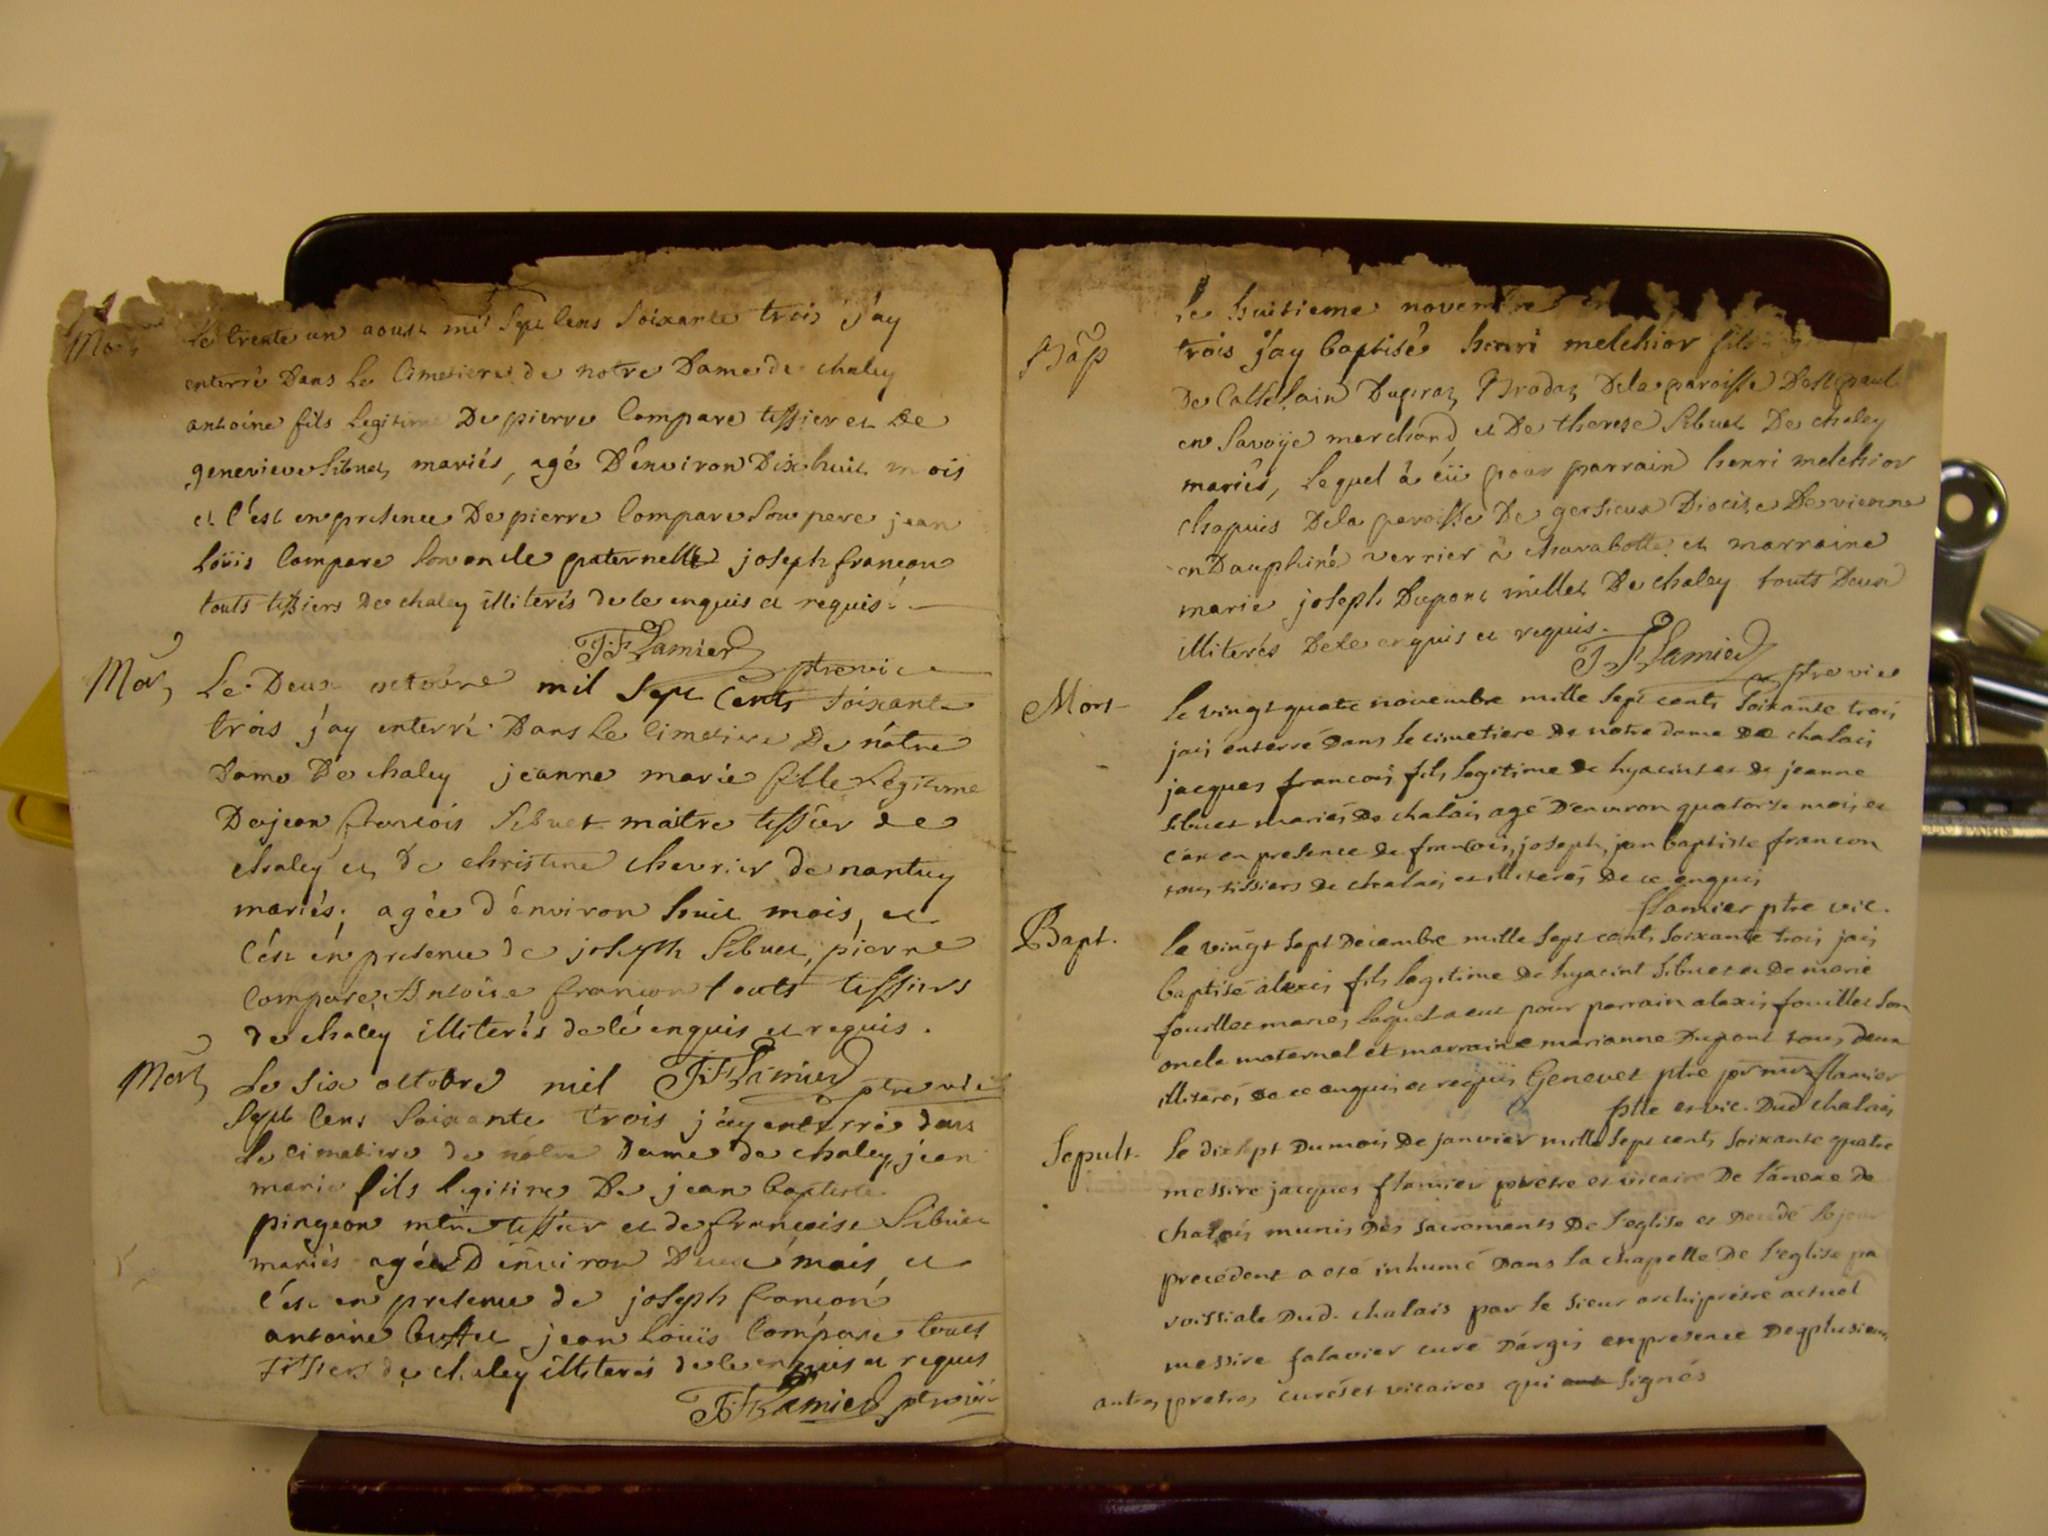 Mor
Le trente un aoust mil sept cens soixante trois j'ay
enterré dans le cimetiere de notre Dame de chaley
antoine fils legitime De pierre Compare tissier et De
genevieve Sibuet, mariés, agé D'environ Dix huit mois
et c'est en presence De pierre Compare son pere jean
Loüis Compare son oncle paternelle joseph françon
touts tissiers De chaley illiterés de le enquis et requis.
J: Flamier ptre vic
Mor,
Le Deux octobre mil sept Cents soixante
trois j'ay enterré Dans le cimetiere De nôtre
Dame De chaley jeanne marie fille Legitime
De jean francois Sibuet maitre tissier de
chaley et De christine chevrier de nantuy
mariés. agée d'énviron huit mois, et
c'ést én présence de joseph Sibuet, pierre
Compare, Antoine françon touts tissiers
de chaley illiterés de lé enquis et requis.
J: Flamier ptre vic
Mort,
Le six octobre mil
sept cens soixante trois j'ay enterré dans
le cimetiere de nôtre Dame de chaley, jean
marie fils legitime De jean baptiste
pingeon mtre tissier et de françoise Sibuet
mariés agée D'énviron Deux mois, et
c'est en presence de joseph françon
antoine jean Loüis Compare touts
tissiers de chaley illiterés de le enquis et requis
J: Flamier ptre vic
Bap
Le huitieme novembre
trois j'ay baptisé henri melchior fils
De Castelain Dupraz Brodaz De la paroisse De st paul
en Savoÿe marchand et De therese Sibuet De chaley
mariés, Lequel à éü pour parrain henri melchior
chapuis De la paroisse De gersieux Diocise De vienne
en Dauphiné verrier à charabotte et marraine
marie joseph Dupont millet De chaley touts Deux
illiterés De le enquis et requis.
J: Flamier ptre vic
Mort
Le vingt quatre novembre mille sept cents soixante trois
jais enterré dans le cimetiere de notre dame de chalais
jacques francois fils legitime de hyacint et de jeanne
sibuet mariés De chalais agé D'environ quatorse mois et
c'ait en presence de francois, joseph, jan baptiste françon
tous tissiers de chalais et illiterés De ce enquis
flamier ptre vic.
Bapt.
Le vingt sept Decembre mille sept cents soixante trois jais
baptisé alexis fils legitime de hyacint sibuet et De marie
fouillet mariés, lequel a eut pour parrain alexis fouillet son
oncle maternel et marraine marianne Dupont tous deux
illiterés, de ce enquis et requis Genevet ptre flamier
ptre et vic. Dud chalais
Sepult.
Le dixsept Du mois De janvier mille sept cents soixante quatre
messire jacques flamier pretre et vicaire De l'anexe de
chalais munis Des sacrements De l'eglise et Decedé le jour
precedent a eté inhumé Dans la chapelle De l'eglise pa
roissiale Dud. chalais par le sieur archiprétre actuel
messire falavier curé D'argis en presence De plusieurs
autres pretres curés et vicaires qui ont signés